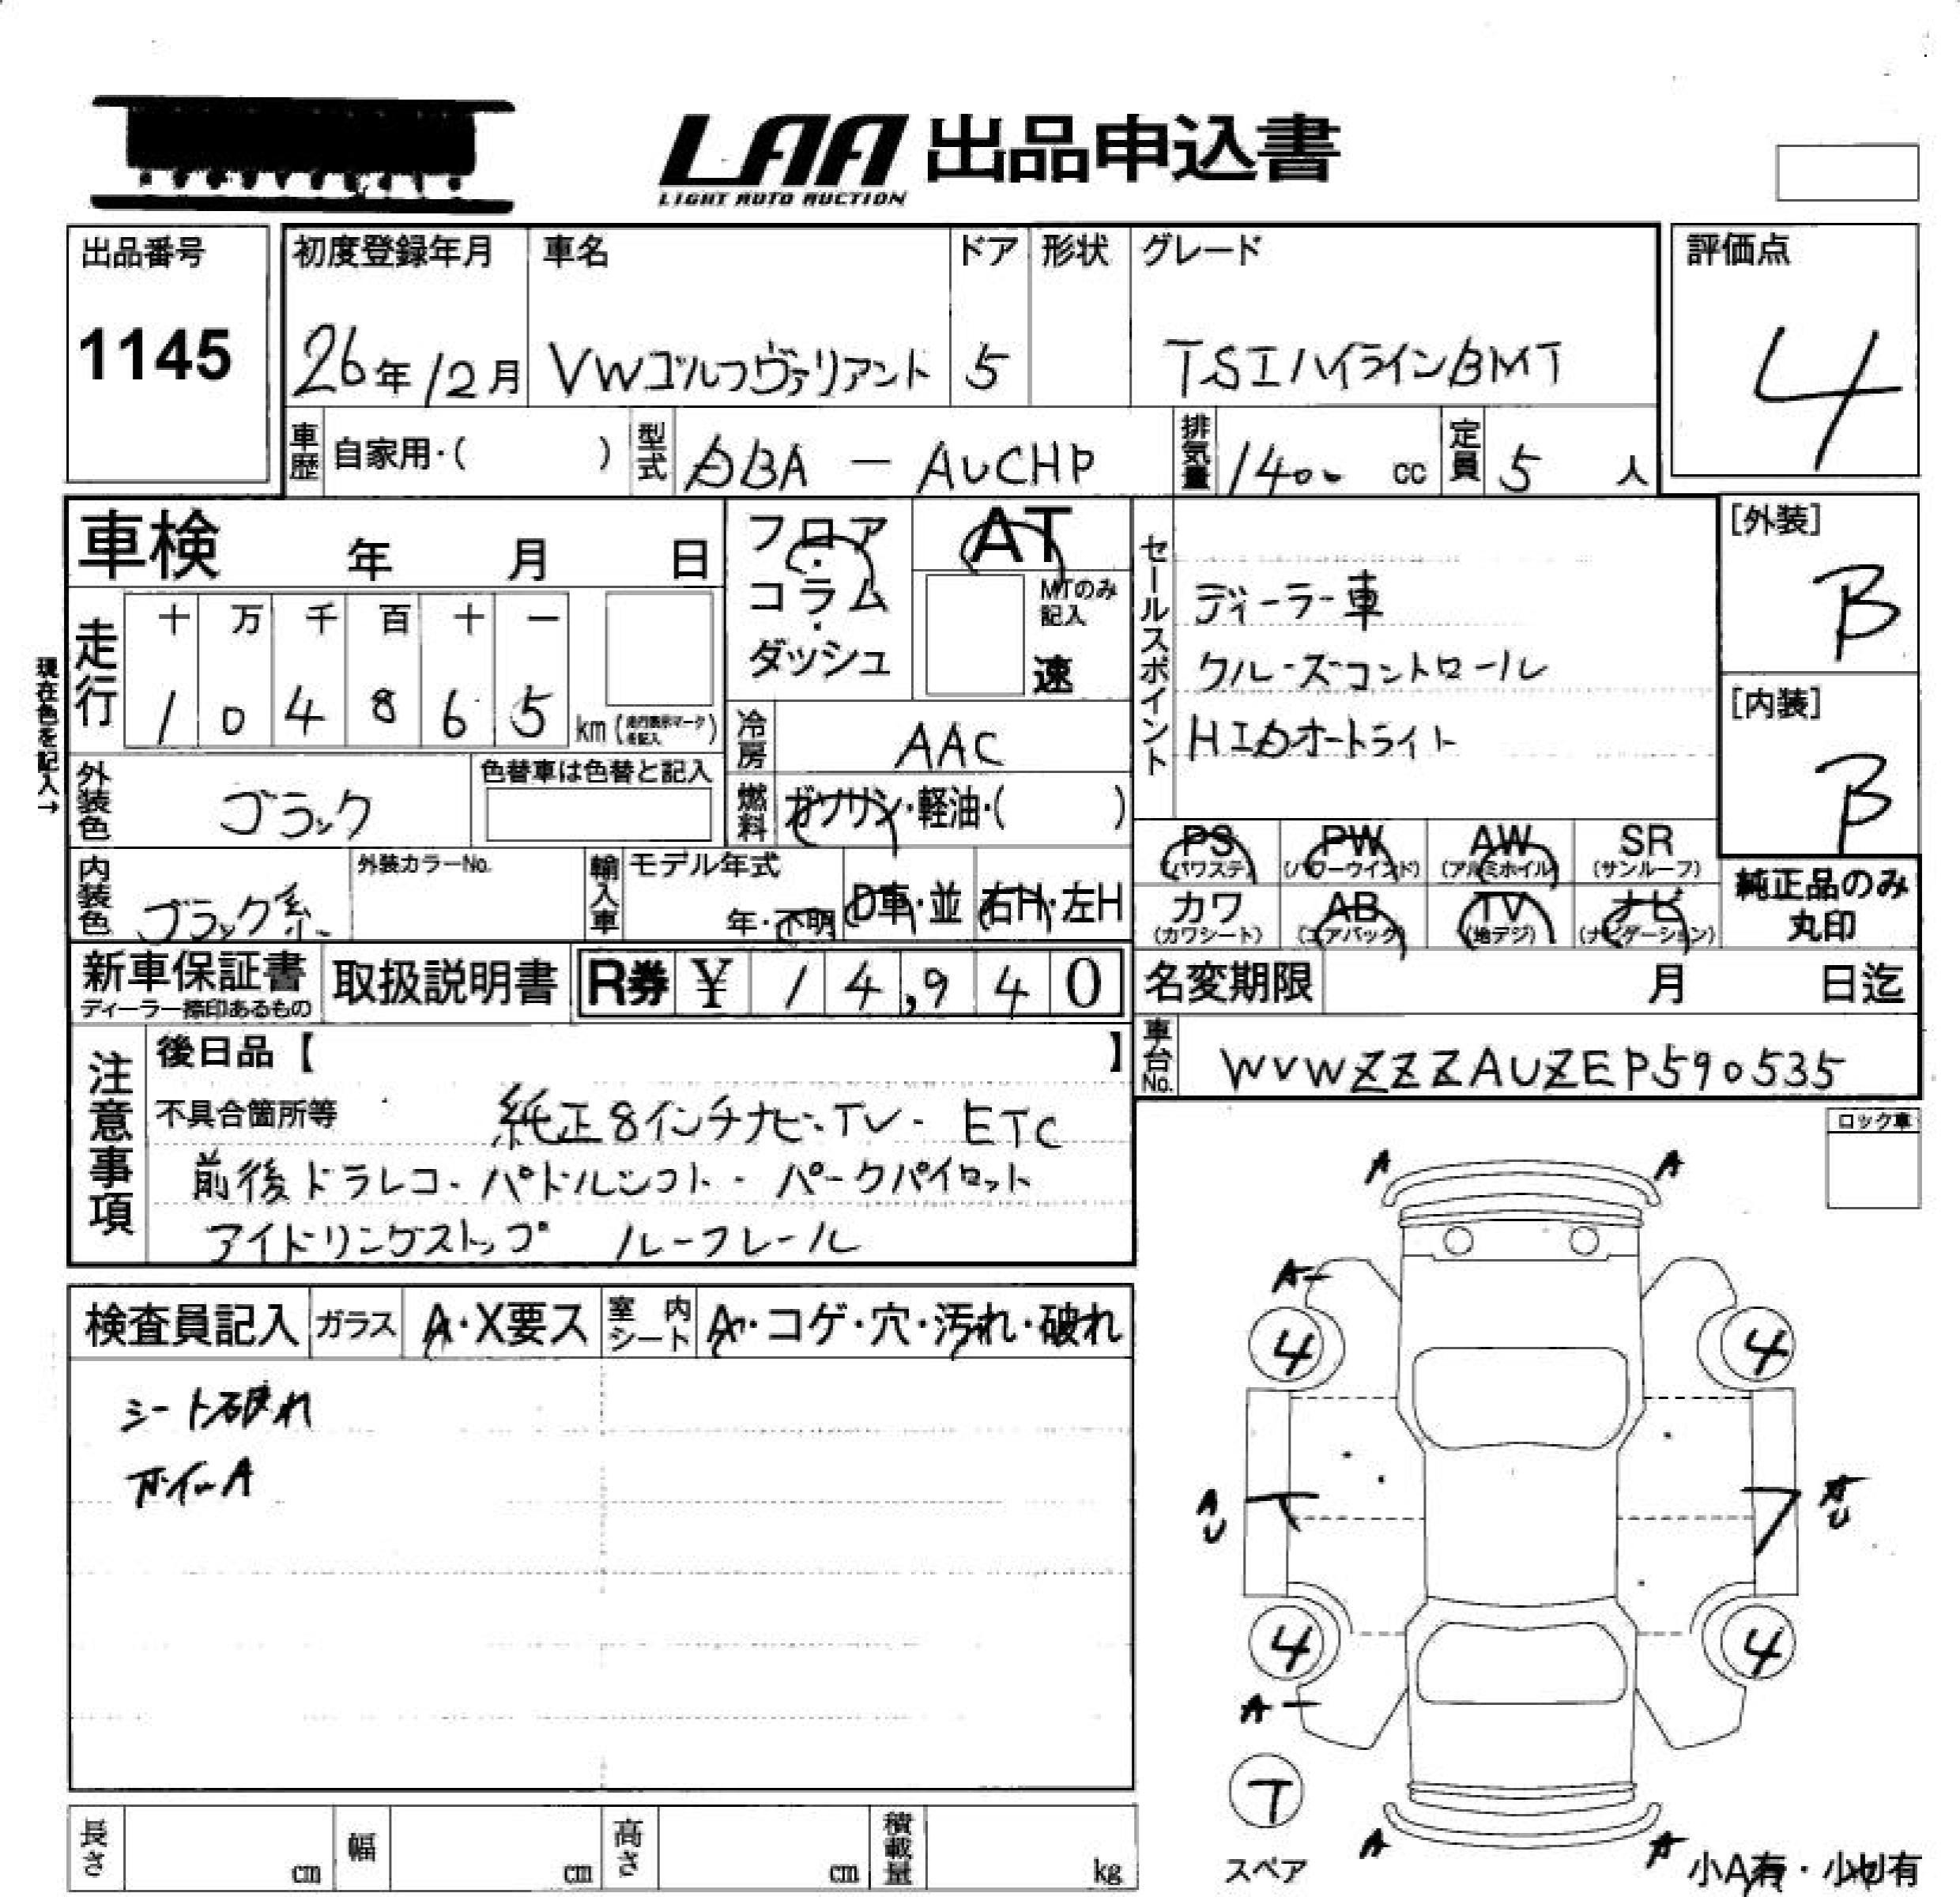 LAA 出品申込書
LIGHT AUTO AUCTION
出品番号
1145
初度登録年月
26年12月
車名
VWゴルフヴァリアント
ドア
5
形状
グレード
TSIハイラインBMT
評価点
4
車歴 自家用・( )
型式 DBA - AUCHP
排気量 1400 cc
定員 5 人
車検 年 月 日
フロア・コラム・ダッシュ
AT
MTのみ記入
速
セールスポイント
ディーラー車
クルーズコントロール
HIDオートライト
[外装]
B
[内装]
B
現在色を記入→
走行
十 万 千 百 十 一
1 0 4 8 6 5 km (走行表示マークを記入)
冷房 AAC
外装色 ブラック
色替車は色替と記入
燃料 ガソリン・軽油・( )
内装色 ブラック系
外装カラーNo.
輸入車 モデル年式
年・不明
D車・並 右H・左H
PS (パワステ) PW (パワーウインド) AW (アルミホイル) SR (サンルーフ)
カワ (カワシート) AB (エアバック) TV (地デジ) ナビ (ナビゲーション)
純正品のみ丸印
新車保証書
ディーラー捺印あるもの
取扱説明書
R券 ¥ 14,940
名変期限 月 日迄
車台No. WVWZZZAUZEP590535
注意事項
後日品【 】
不具合箇所等 純正8インチナビ・TV・ETC
前後ドラレコ・パドルシフト・パークパイロット
アイドリングストップ ルーフレール
ロック車
検査員記入 ガラス A・X要ス 室内シート A・コゲ・穴・汚れ・破れ
シート破れ
ホイールA
A A
A
4 4
AU AU
4 4
A
T
スペア
A A
小A有・小U有
長さ cm 幅 cm 高さ cm 積載量 kg